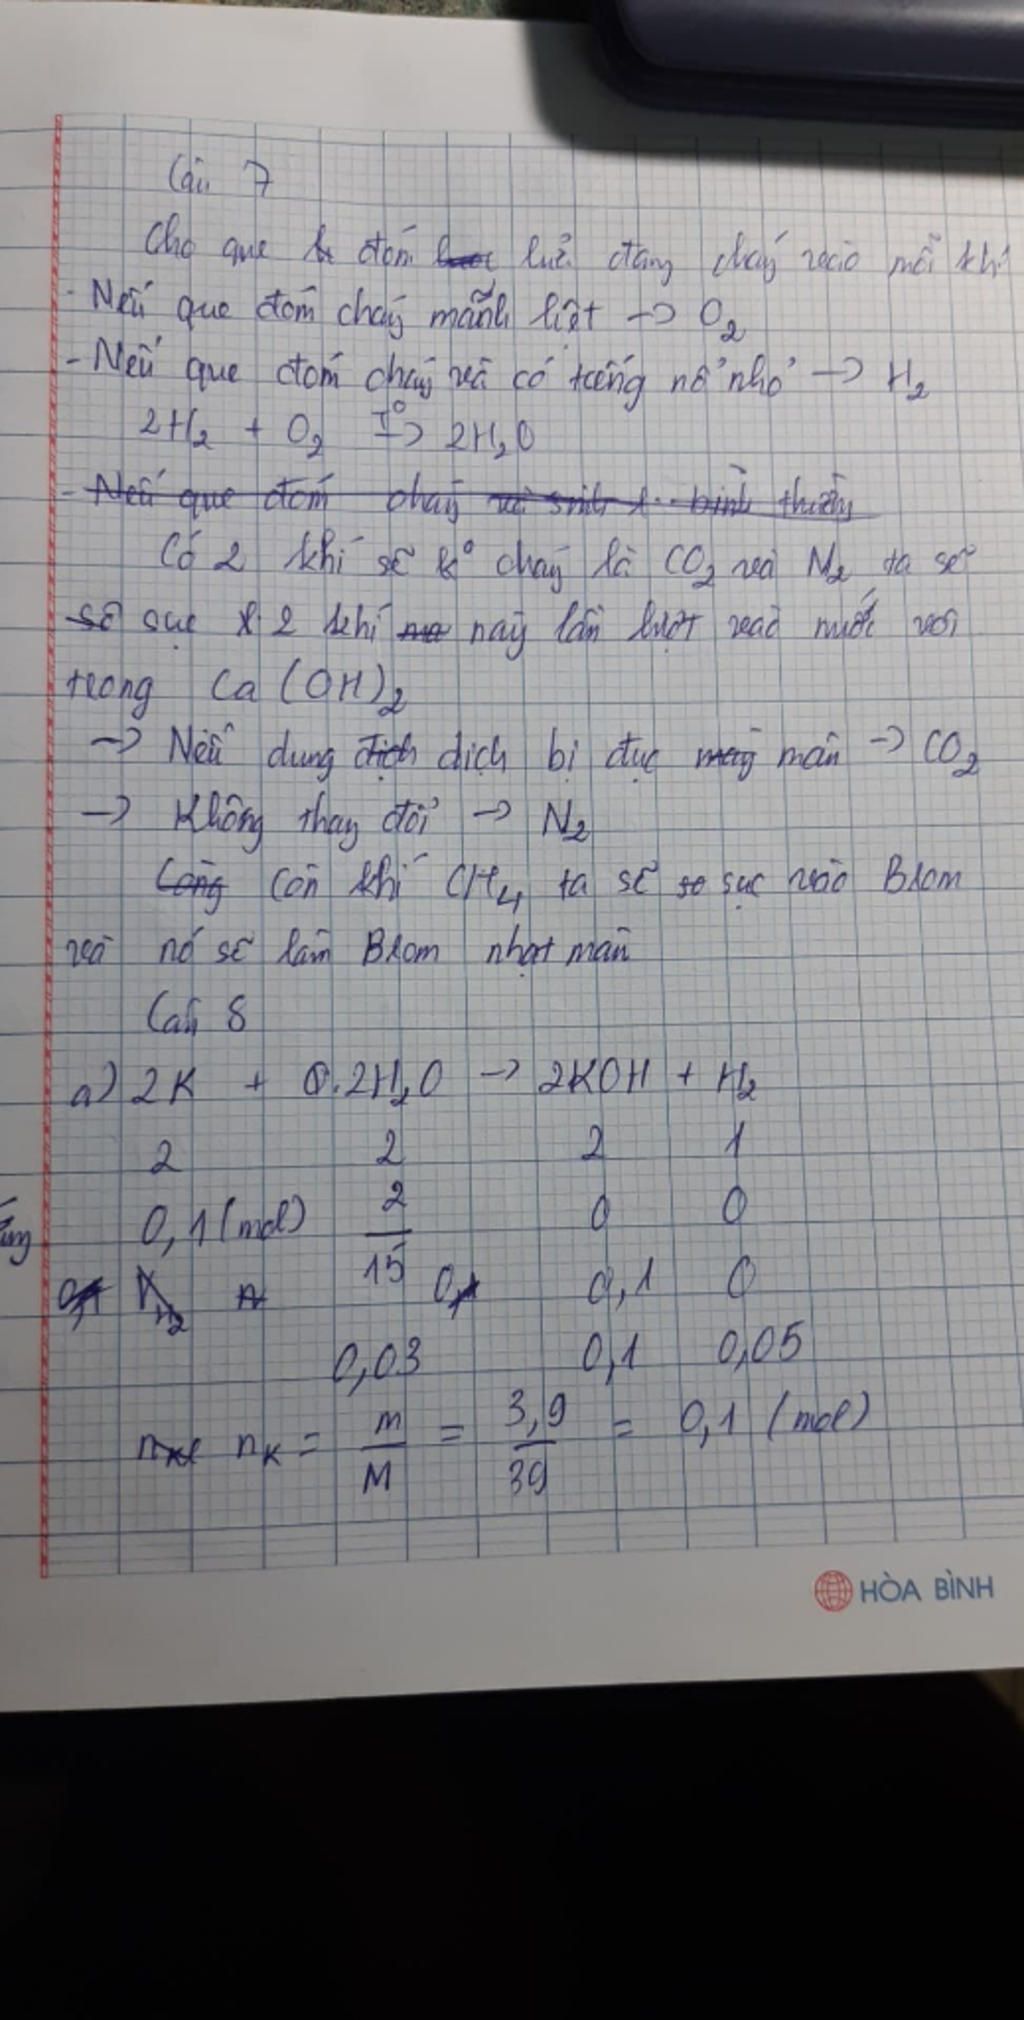 Câu 7
Cho que đóm lửa đang cháy vào mỗi khí
- Nếu que đóm cháy mãnh liệt -> O2
- Nếu que đóm cháy và có tiếng nổ nhỏ -> H2
2H2 + O2 T°-> 2H2O
- Nếu que đóm cháy bình thường
Có 2 khí sẽ k° cháy là CO2 và N2 ta sẽ
sẽ sục 2 khí này lần lượt vào nước vôi
trong Ca(OH)2
-> Nếu dung dịch dịch bị đục màu -> CO2
-> Không thay đổi -> N2
Còng Còn khí CH4 ta sẽ sục vào Brom
và nó sẽ làm Brom nhạt màu
Câu 8
a) 2K + 2H2O -> 2KOH + H2
2 2 2 1
0,1 (mol) 2/15 0 0
0,1 0
0,03 0,1 0,05
nK = m/M = 3,9/39 = 0,1 (mol)
HÒA BÌNH